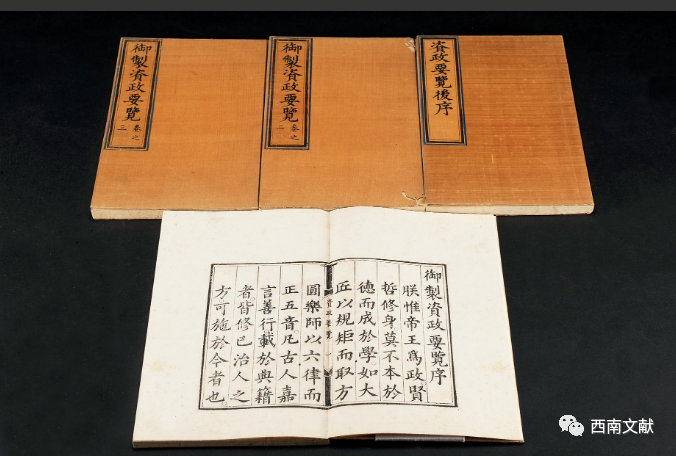 御製資政要覽
卷之
三
御製資政要覽
卷之
二
資政要覽後序
御製資政要覽序
朕惟帝王為政賢
哲修身莫不本於
德而成於學如大
匠以規矩而取方
圓樂師以六律而
正五音凡古人嘉
言善行載於典籍
者皆修己治人之
方可施於今者也
資政要覽
西南文献